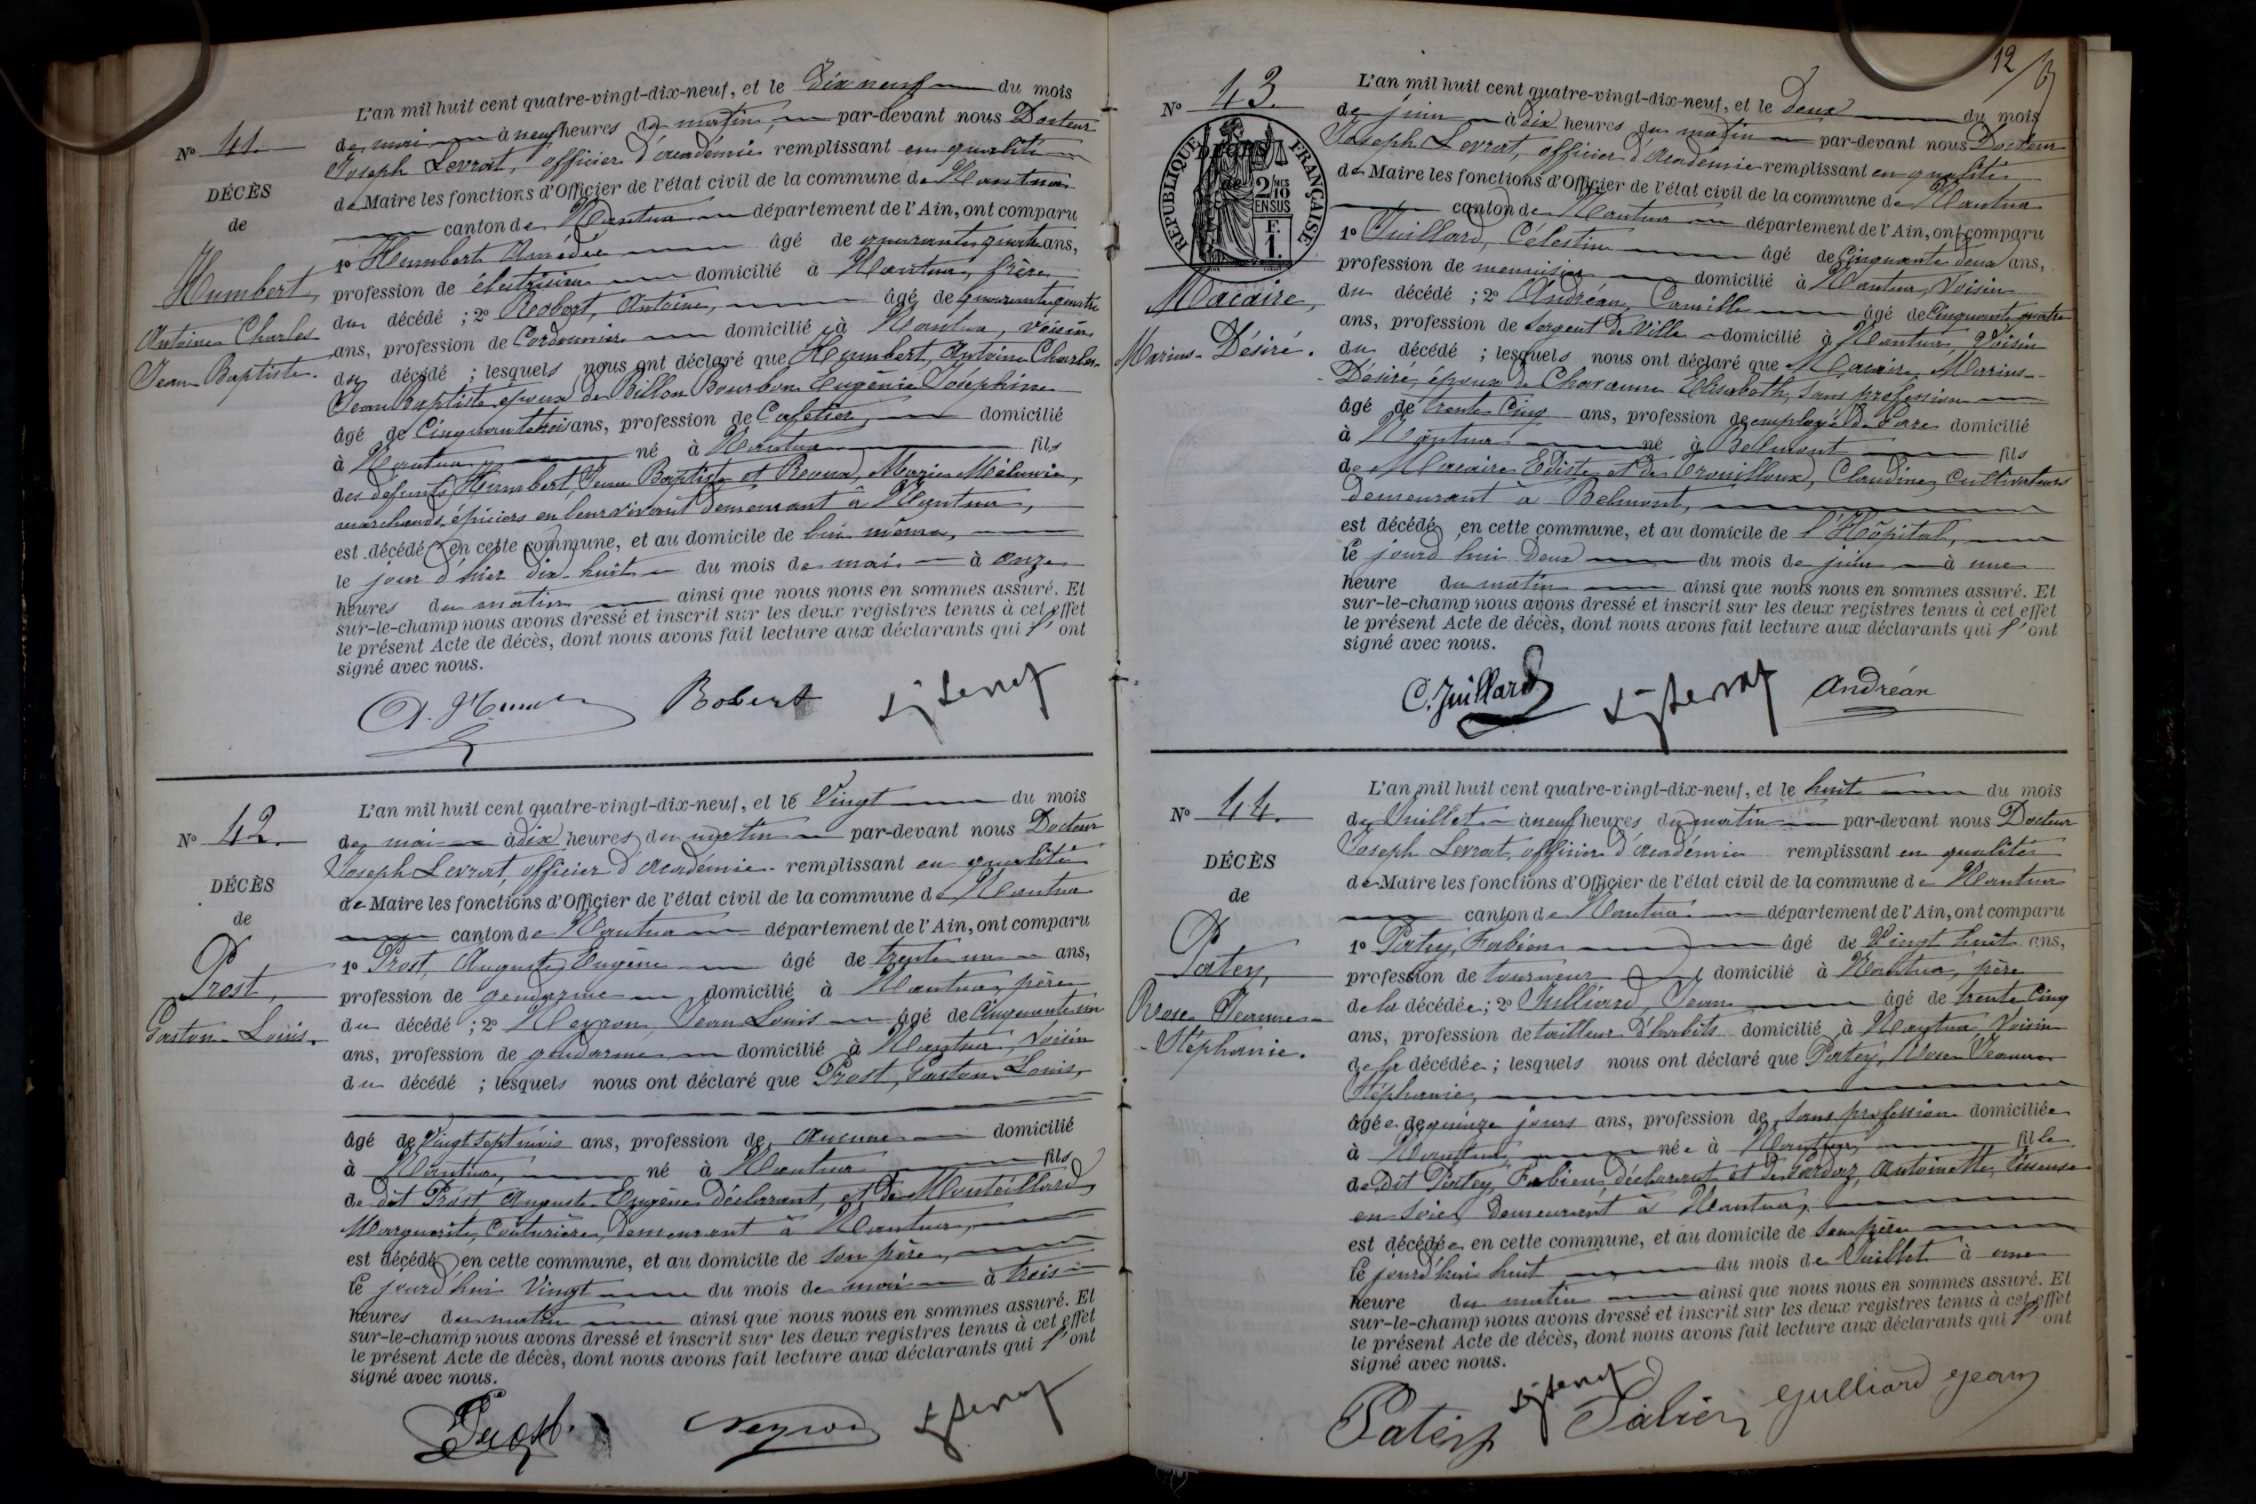 L'an mil huit cent quatre-vingt-dix-neuf, et le Dix neuf du mois
de mai à neuf heures du matin, par-devant nous Docteur
Joseph Levrat, officier d'académie remplissant en qualité
de Maire les fonctions d'Officier de l'état civil de la commune de Nantua
canton de Nantua département de l'Ain, ont comparu
1º Humbert Amédée âgé de quarante quatre ans,
profession de électricien domicilié à Nantua, frère
du décédé ; 2º Robert, Antoine, âgé de quarante quatre
ans, profession de Cordonnier domicilié à Nantua, voisin
du décédé ; lesquels nous ont déclaré que Humbert, Antoine Charles
Jean Baptiste époux de Billon Bourbon Eugénie Joséphine
âgé de Cinquante trois ans, profession de Cafetier, domicilié
à Nantua né à Nantua fils
des défunts Humbert, Jean Baptiste et Mélanie,
marchands épiciers en leur vivant demeurant à Nantua,
est décédé en cette commune, et au domicile de lui même,
le jour d'hier dix-huit du mois de mai à onze
heures du matin ainsi que nous nous en sommes assuré. Et
sur-le-champ nous avons dressé et inscrit sur les deux registres tenus à cet effet
le présent Acte de décès, dont nous avons fait lecture aux déclarants qui l'ont
signé avec nous.
Nº 41.
DÉCÈS
de
Humbert,
Antoine Charles
Jean Baptiste.
Robert
L'an mil huit cent quatre-vingt-dix-neuf, et le Vingt du mois
de mai à dix heures du matin par-devant nous Docteur
Joseph Levrat, officier d'académie remplissant en qualité
de Maire les fonctions d'Officier de l'état civil de la commune de Nantua
canton de Nantua département de l'Ain, ont comparu
1º Prost, Auguste Eugène âgé de trente un ans,
profession de gendarme domicilié à Nantua, père
du décédé ; 2º Neyron, Jean Louis âgé de Cinquante un
ans, profession de gendarme domicilié à Nantua, voisin
du décédé ; lesquels nous ont déclaré que Prost, Gaston Louis,
âgé de Vingt sept mois ans, profession de aucune domicilié
à Nantua, né à Nantua fils
de dit Prost Auguste Eugène déclarant, et de Monteillard,
Marguerite, Couturière, demeurant à Nantua,
est décédé en cette commune, et au domicile de son père,
le jourd'hui Vingt du mois de mai à trois
heures du matin ainsi que nous nous en sommes assuré. Et
sur-le-champ nous avons dressé et inscrit sur les deux registres tenus à cet effet
le présent Acte de décès, dont nous avons fait lecture aux déclarants qui l'ont
signé avec nous.
Nº 42.
DÉCÈS
de
Prost,
Gaston-Louis.
Prost. Neyron
12
L'an mil huit cent quatre-vingt-dix-neuf, et le Deux du mois
de juin à dix heures du matin par-devant nous Docteur
Joseph Levrat, officier d'académie remplissant en qualité
de Maire les fonctions d'Officier de l'état civil de la commune de Nantua
canton de Nantua département de l'Ain, ont comparu
1º Juillard, Célestin âgé de Cinquante deux ans,
profession de menuisier domicilié à Nantua, Voisin
du décédé ; 2º Andréan, Camille âgé de Cinquante quatre
ans, profession de Sergent de Ville domicilié à Nantua, Voisin
du décédé ; lesquels nous ont déclaré que Macaire, Marius-
Désiré, époux de Chavanne Elisabeth, sans profession
âgé de trente Cinq ans, profession de employé de Gare domicilié
à Nantua né à Belmont fils
de Macaire Ediste et de Trouilloux, Claudine, Cultivateurs
demeurant à Belmont,
est décédé en cette commune, et au domicile de l'Hôpital,
le jourd'hui Deux du mois de juin à une
heure du matin ainsi que nous nous en sommes assuré. Et
sur-le-champ nous avons dressé et inscrit sur les deux registres tenus à cet effet
le présent Acte de décès, dont nous avons fait lecture aux déclarants qui l'ont
signé avec nous.
Nº 43.
RÉPUBLIQUE FRANÇAISE
2/10
EN SUS
F.
1.
Macaire,
Marius-Désiré.
C. Juillard Andréan
L'an mil huit cent quatre-vingt-dix-neuf, et le huit du mois
de Juillet à neuf heures du matin par-devant nous Docteur
Joseph Levrat, officier d'académie remplissant en qualité
de Maire les fonctions d'Officier de l'état civil de la commune de Nantua
canton de Nantua département de l'Ain, ont comparu
1º Patey, Fabien âgé de Vingt huit ans,
profession de tourneur domicilié à Nantua, père
de la décédée ; 2º Julliard, Jean âgé de trente Cinq
ans, profession de tailleur d'habits domicilié à Nantua, Voisin
de la décédée ; lesquels nous ont déclaré que Patey, Rose Jeanne
Stéphanie,
âgée de quinze jours ans, profession de sans profession domiciliée
à Nantua, née à Nantua, fille
de dit Patey, Fabien, déclarant et de Antoinette, tisseuse
en soie, demeurant à Nantua,
est décédée en cette commune, et au domicile de son père
le jourd'hui huit du mois de Juillet à une
heure du matin ainsi que nous nous en sommes assuré. Et
sur-le-champ nous avons dressé et inscrit sur les deux registres tenus à cet effet
le présent Acte de décès, dont nous avons fait lecture aux déclarants qui l'ont
signé avec nous.
Nº 44.
DÉCÈS
de
Patey,
Rose Jeanne-
-Stéphanie.
Patey Fabien Julliard Jean